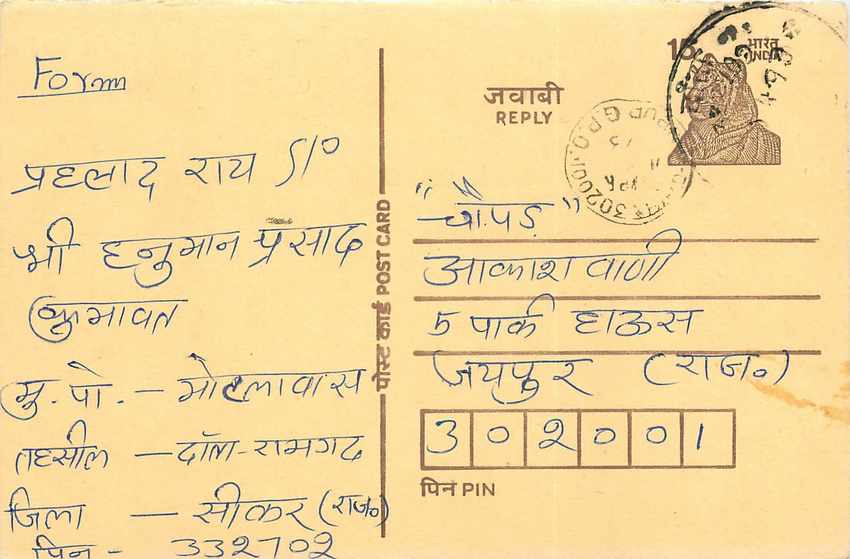 Form
प्रहलाद राय S/o
श्री हनुमान प्रसाद
कुमावत
मु. पो. – मोटलावास
तहसील – दाँता-रामगढ
जिला – सीकर (राज॰)
पिन – 332702
पोस्ट कार्ड POST CARD
जवाबी
REPLY
15
भारत
INDIA
G.P.O.
302001
"चौपड़"
आकाशवाणी
5 पार्क हाऊस
जयपुर (राज॰)
302001
पिन PIN